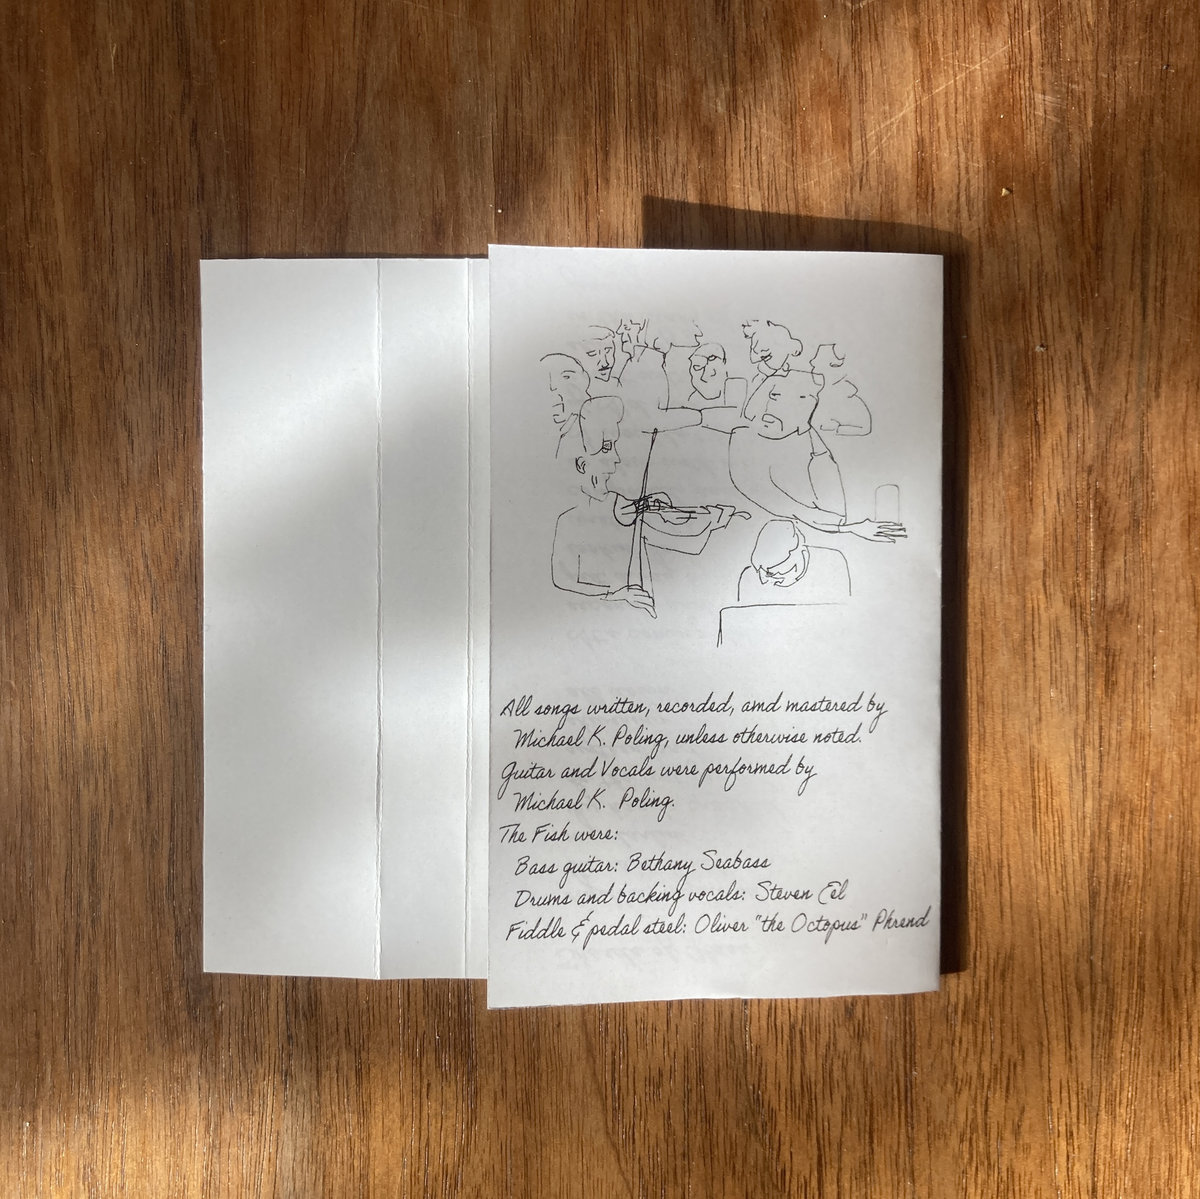 All songs written, recorded, amd mastered by
Michael K. Poling, unless otherwise noted.
Guitar and Vocals were performed by
Michael K. Poling.
The Fish were:
Bass guitar: Bethany Seabass
Drums and backing vocals: Steven Eel
Fiddle & pedal steel: Oliver "the Octopus" Phrend